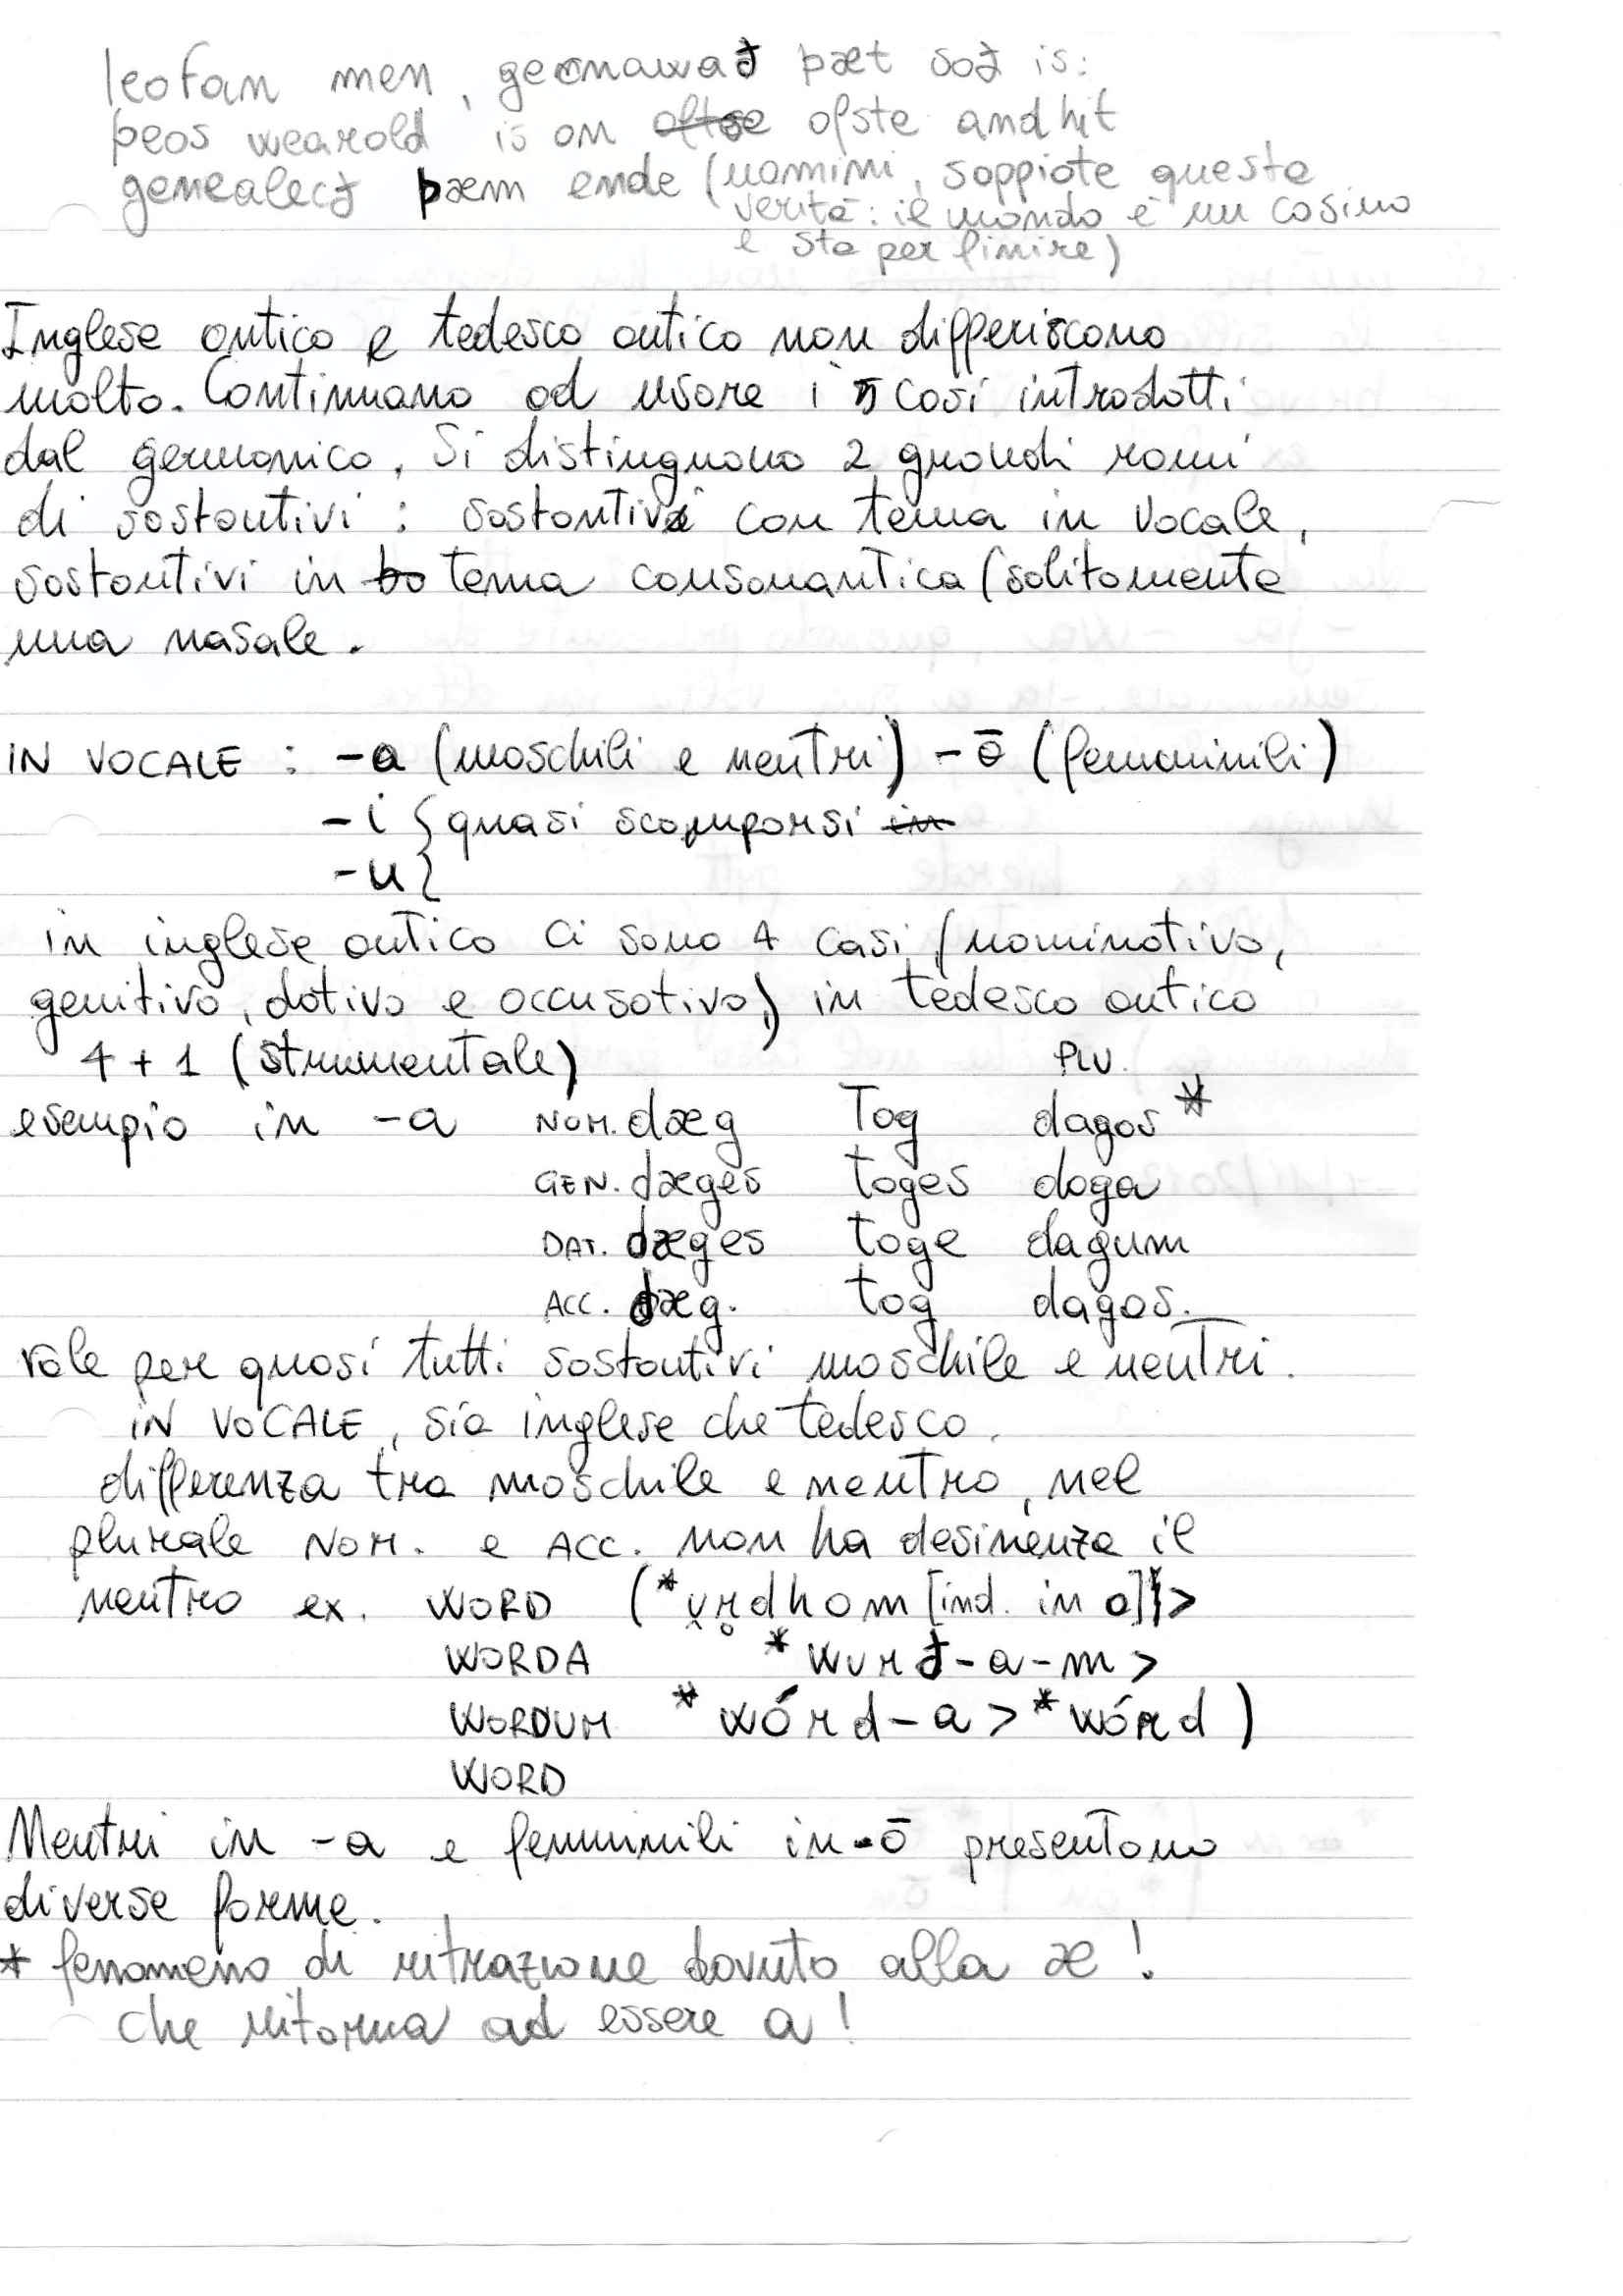 leofan men, gecnawað þæt soð is:
þeos wearold is on ofste and hit
genealecð þæm ende (uomini, sappiate questa
verità: il mondo è un casino
e sta per finire)
Inglese antico e tedesco antico non differiscono
molto. Continuano ad usare i 5 casi introdotti
dal germanico. Si distinguono 2 grandi rami
di sostantivi: sostantivi con tema in vocale,
sostantivi in tema consonantica (solitamente
una nasale.
IN VOCALE : -a (maschili e neutri) -ō (femminili)
-i { quasi scomparsi
-u }
in inglese antico ci sono 4 casi (nominativo,
genitivo, dativo e accusativo) in tedesco antico
4 + 1 (strumentale) PLU.
esempio in -a NOM. dæg Tag dagas *
GEN. dæges tages daga
DAT. dæges tage dagum
ACC. dæg. tag dagas.
vale per quasi tutti sostantivi maschile e neutri.
IN VOCALE, sia inglese che tedesco.
differenza tra maschile e neutro, nel
plurale NOM. e ACC. non ha desinenza il
neutro ex. WORD (*u̯r̥dhom [ind. in o] >
WORDA *wurð-a-m >
WORDUM *wórd-a > *wórd)
WORD
Neutri in -a e femminili in -ō presentano
diverse forme.
* fenomeno di ritrazione dovuto alla æ!
che ritorna ad essere a!